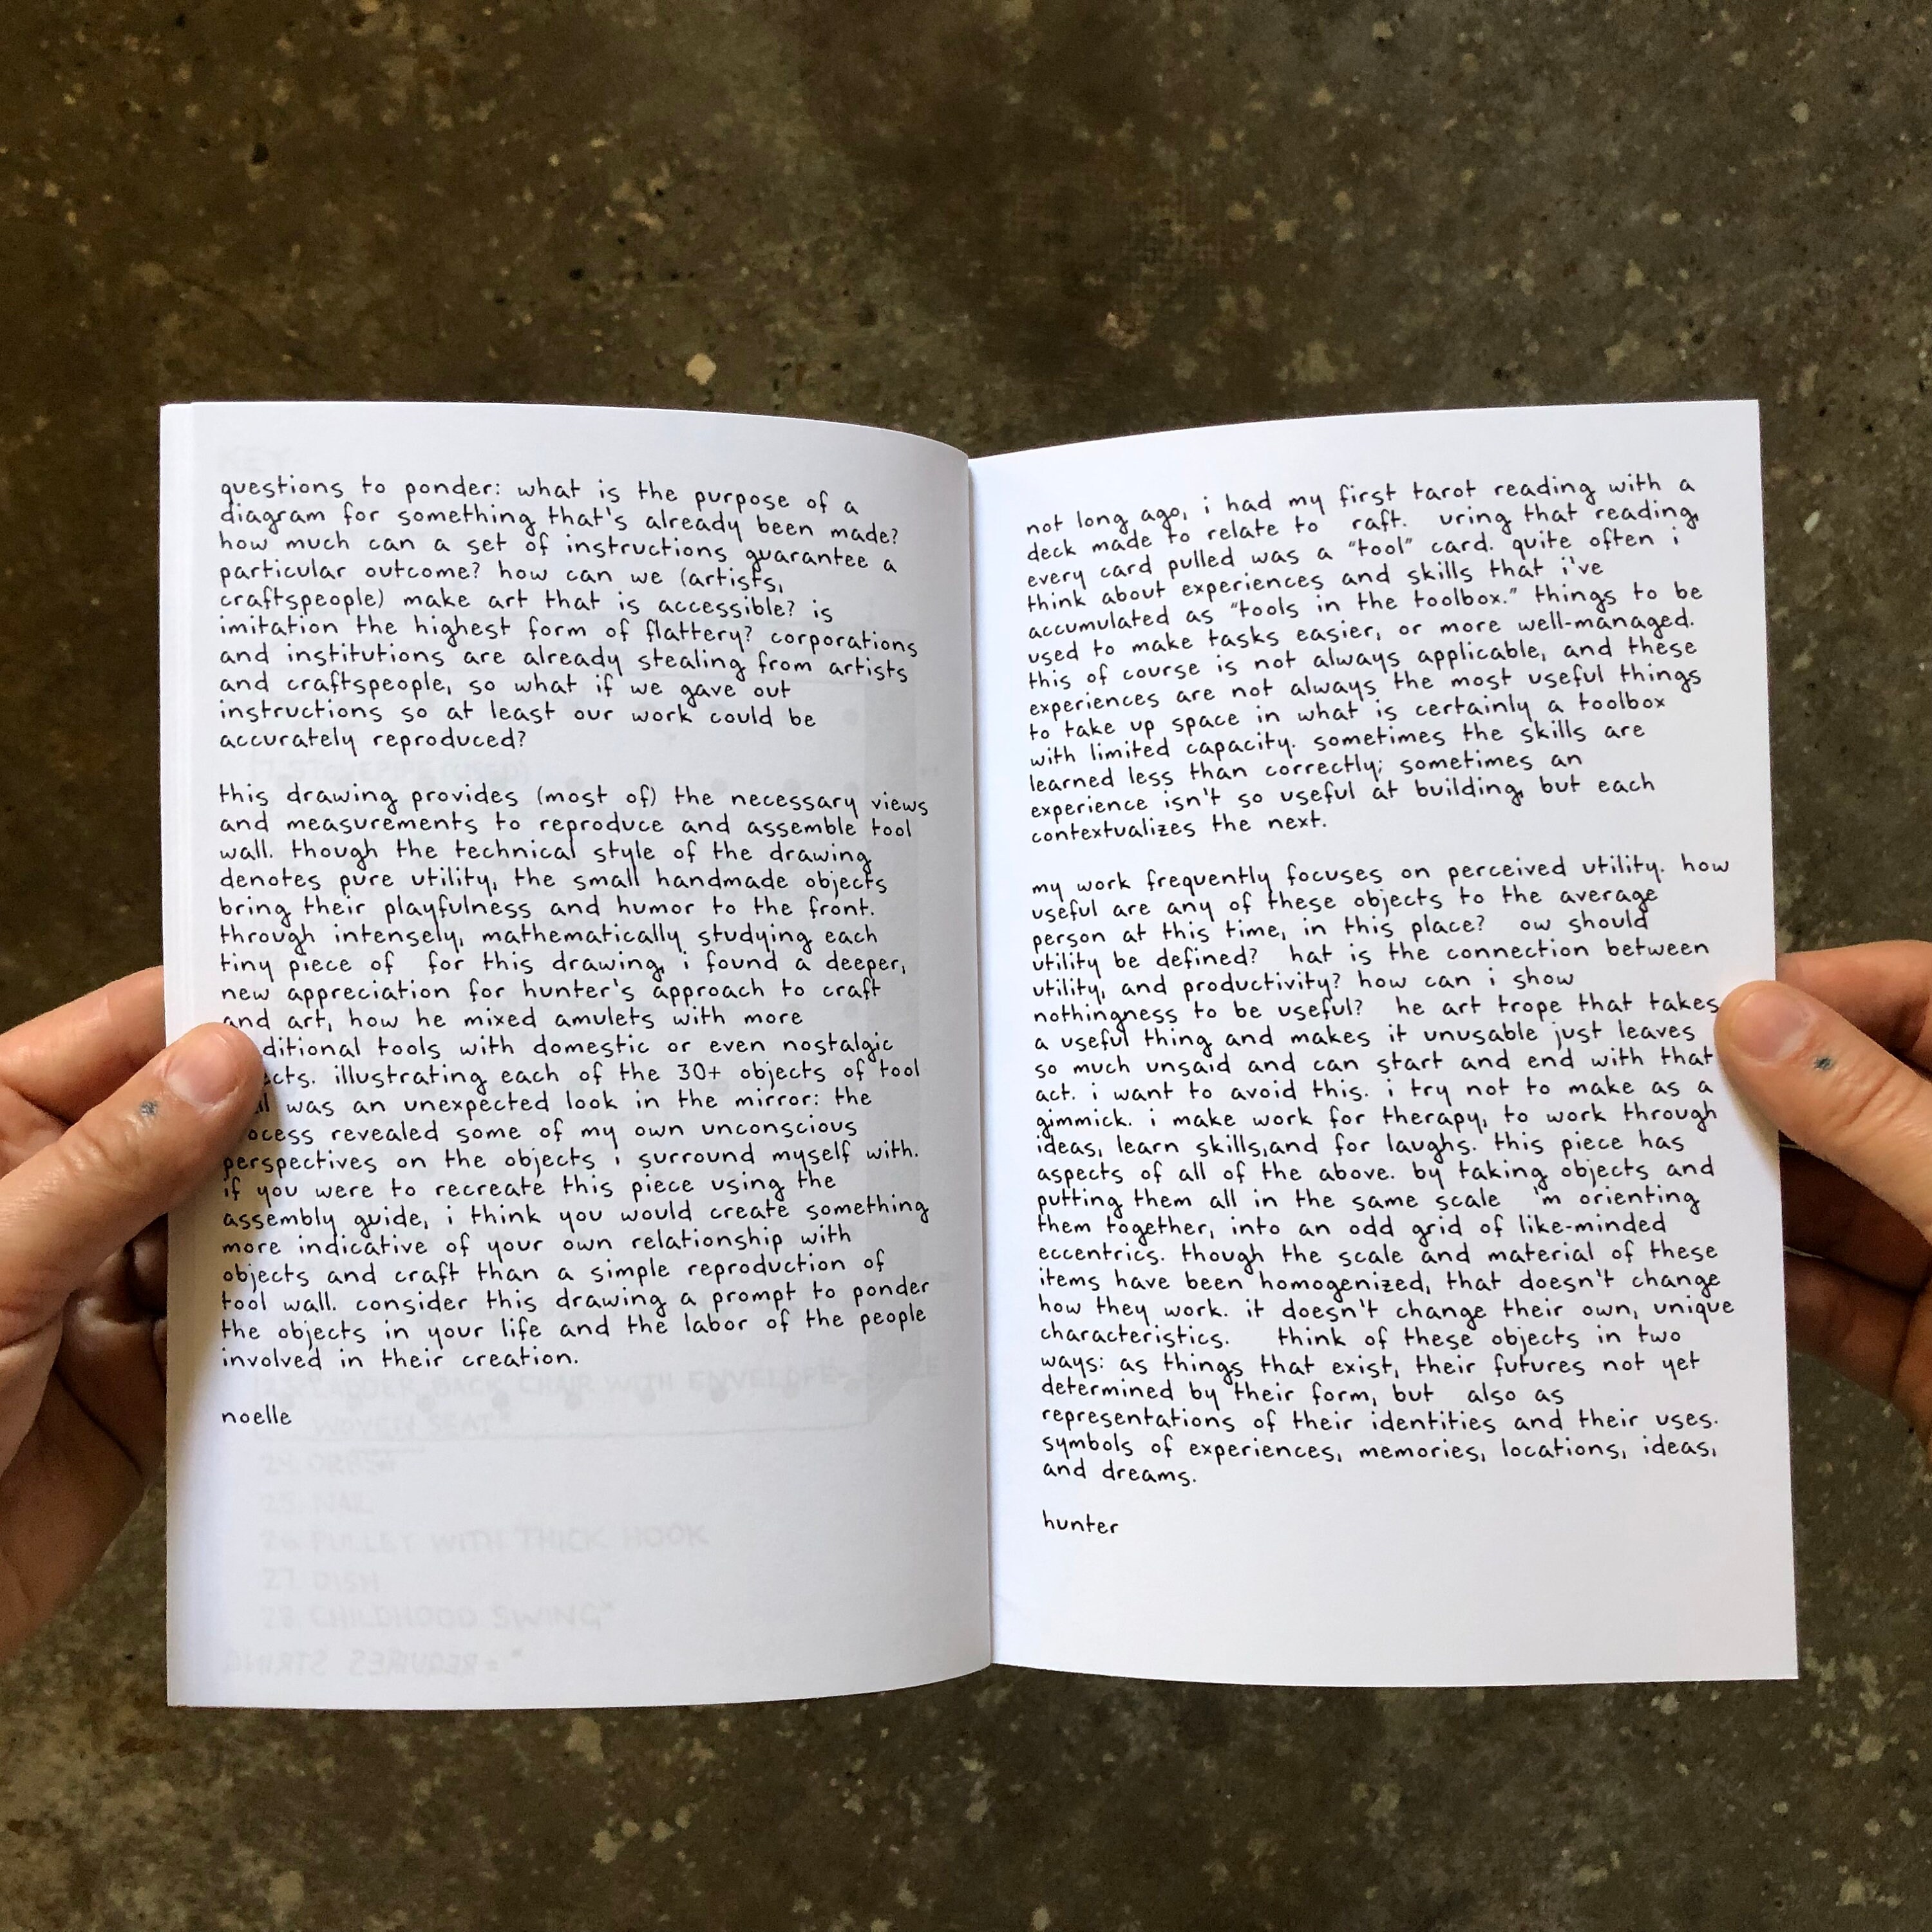 questions to ponder: what is the purpose of a
diagram for something that's already been made?
how much can a set of instructions guarantee a
particular outcome? how can we (artists,
craftspeople) make art that is accessible? is
imitation the highest form of flattery? corporations
and institutions are already stealing from artists
and craftspeople, so what if we gave out
instructions so at least our work could be
accurately reproduced?
this drawing provides (most of) the necessary views
and measurements to reproduce and assemble tool
wall. though the technical style of the drawing
denotes pure utility, the small handmade objects
bring their playfulness and humor to the front.
through intensely, mathematically studying each
tiny piece of for this drawing, i found a deeper,
new appreciation for hunter's approach to craft
and art, how he mixed amulets with more
ditional tools with domestic or even nostalgic
cts. illustrating each of the 30+ objects of tool
was an unexpected look in the mirror: the
ocess revealed some of my own unconscious
perspectives on the objects i surround myself with.
if you were to recreate this piece using the
assembly guide, i think you would create something
more indicative of your own relationship with
objects and craft than a simple reproduction of
tool wall. consider this drawing a prompt to ponder
the objects in your life and the labor of the people
involved in their creation.
noelle
23. LADDER BACK CHAIR WITH ENVELOPE-
WOVEN SEAT
25. NAIL
26. PULLEY WITH THICK HOOK
27. DISH
28. CHILDHOOD SWING*
not long ago, i had my first tarot reading with a
deck made to relate to raft. uring that reading,
every card pulled was a "tool" card. quite often i
think about experiences and skills that i've
accumulated as "tools in the toolbox." things to be
used to make tasks easier, or more well-managed.
this of course is not always applicable, and these
experiences are not always the most useful things
to take up space in what is certainly a toolbox
with limited capacity. sometimes the skills are
learned less than correctly; sometimes an
experience isn't so useful at building, but each
contextualizes the next.
my work frequently focuses on perceived utility. how
useful are any of these objects to the average
person at this time, in this place? ow should
utility be defined? hat is the connection between
utility, and productivity? how can i show
nothingness to be useful? he art trope that takes
a useful thing and makes it unusable just leaves
so much unsaid and can start and end with that
act. i want to avoid this. i try not to make as a
gimmick. i make work for therapy, to work through
ideas, learn skills,and for laughs. this piece has
aspects of all of the above. by taking objects and
putting them all in the same scale 'm orienting
them together, into an odd grid of like-minded
eccentrics. though the scale and material of these
items have been homogenized, that doesn't change
how they work. it doesn't change their own, unique
characteristics. think of these objects in two
ways: as things that exist, their futures not yet
determined by their form, but also as
representations of their identities and their uses.
symbols of experiences, memories, locations, ideas,
and dreams.
hunter